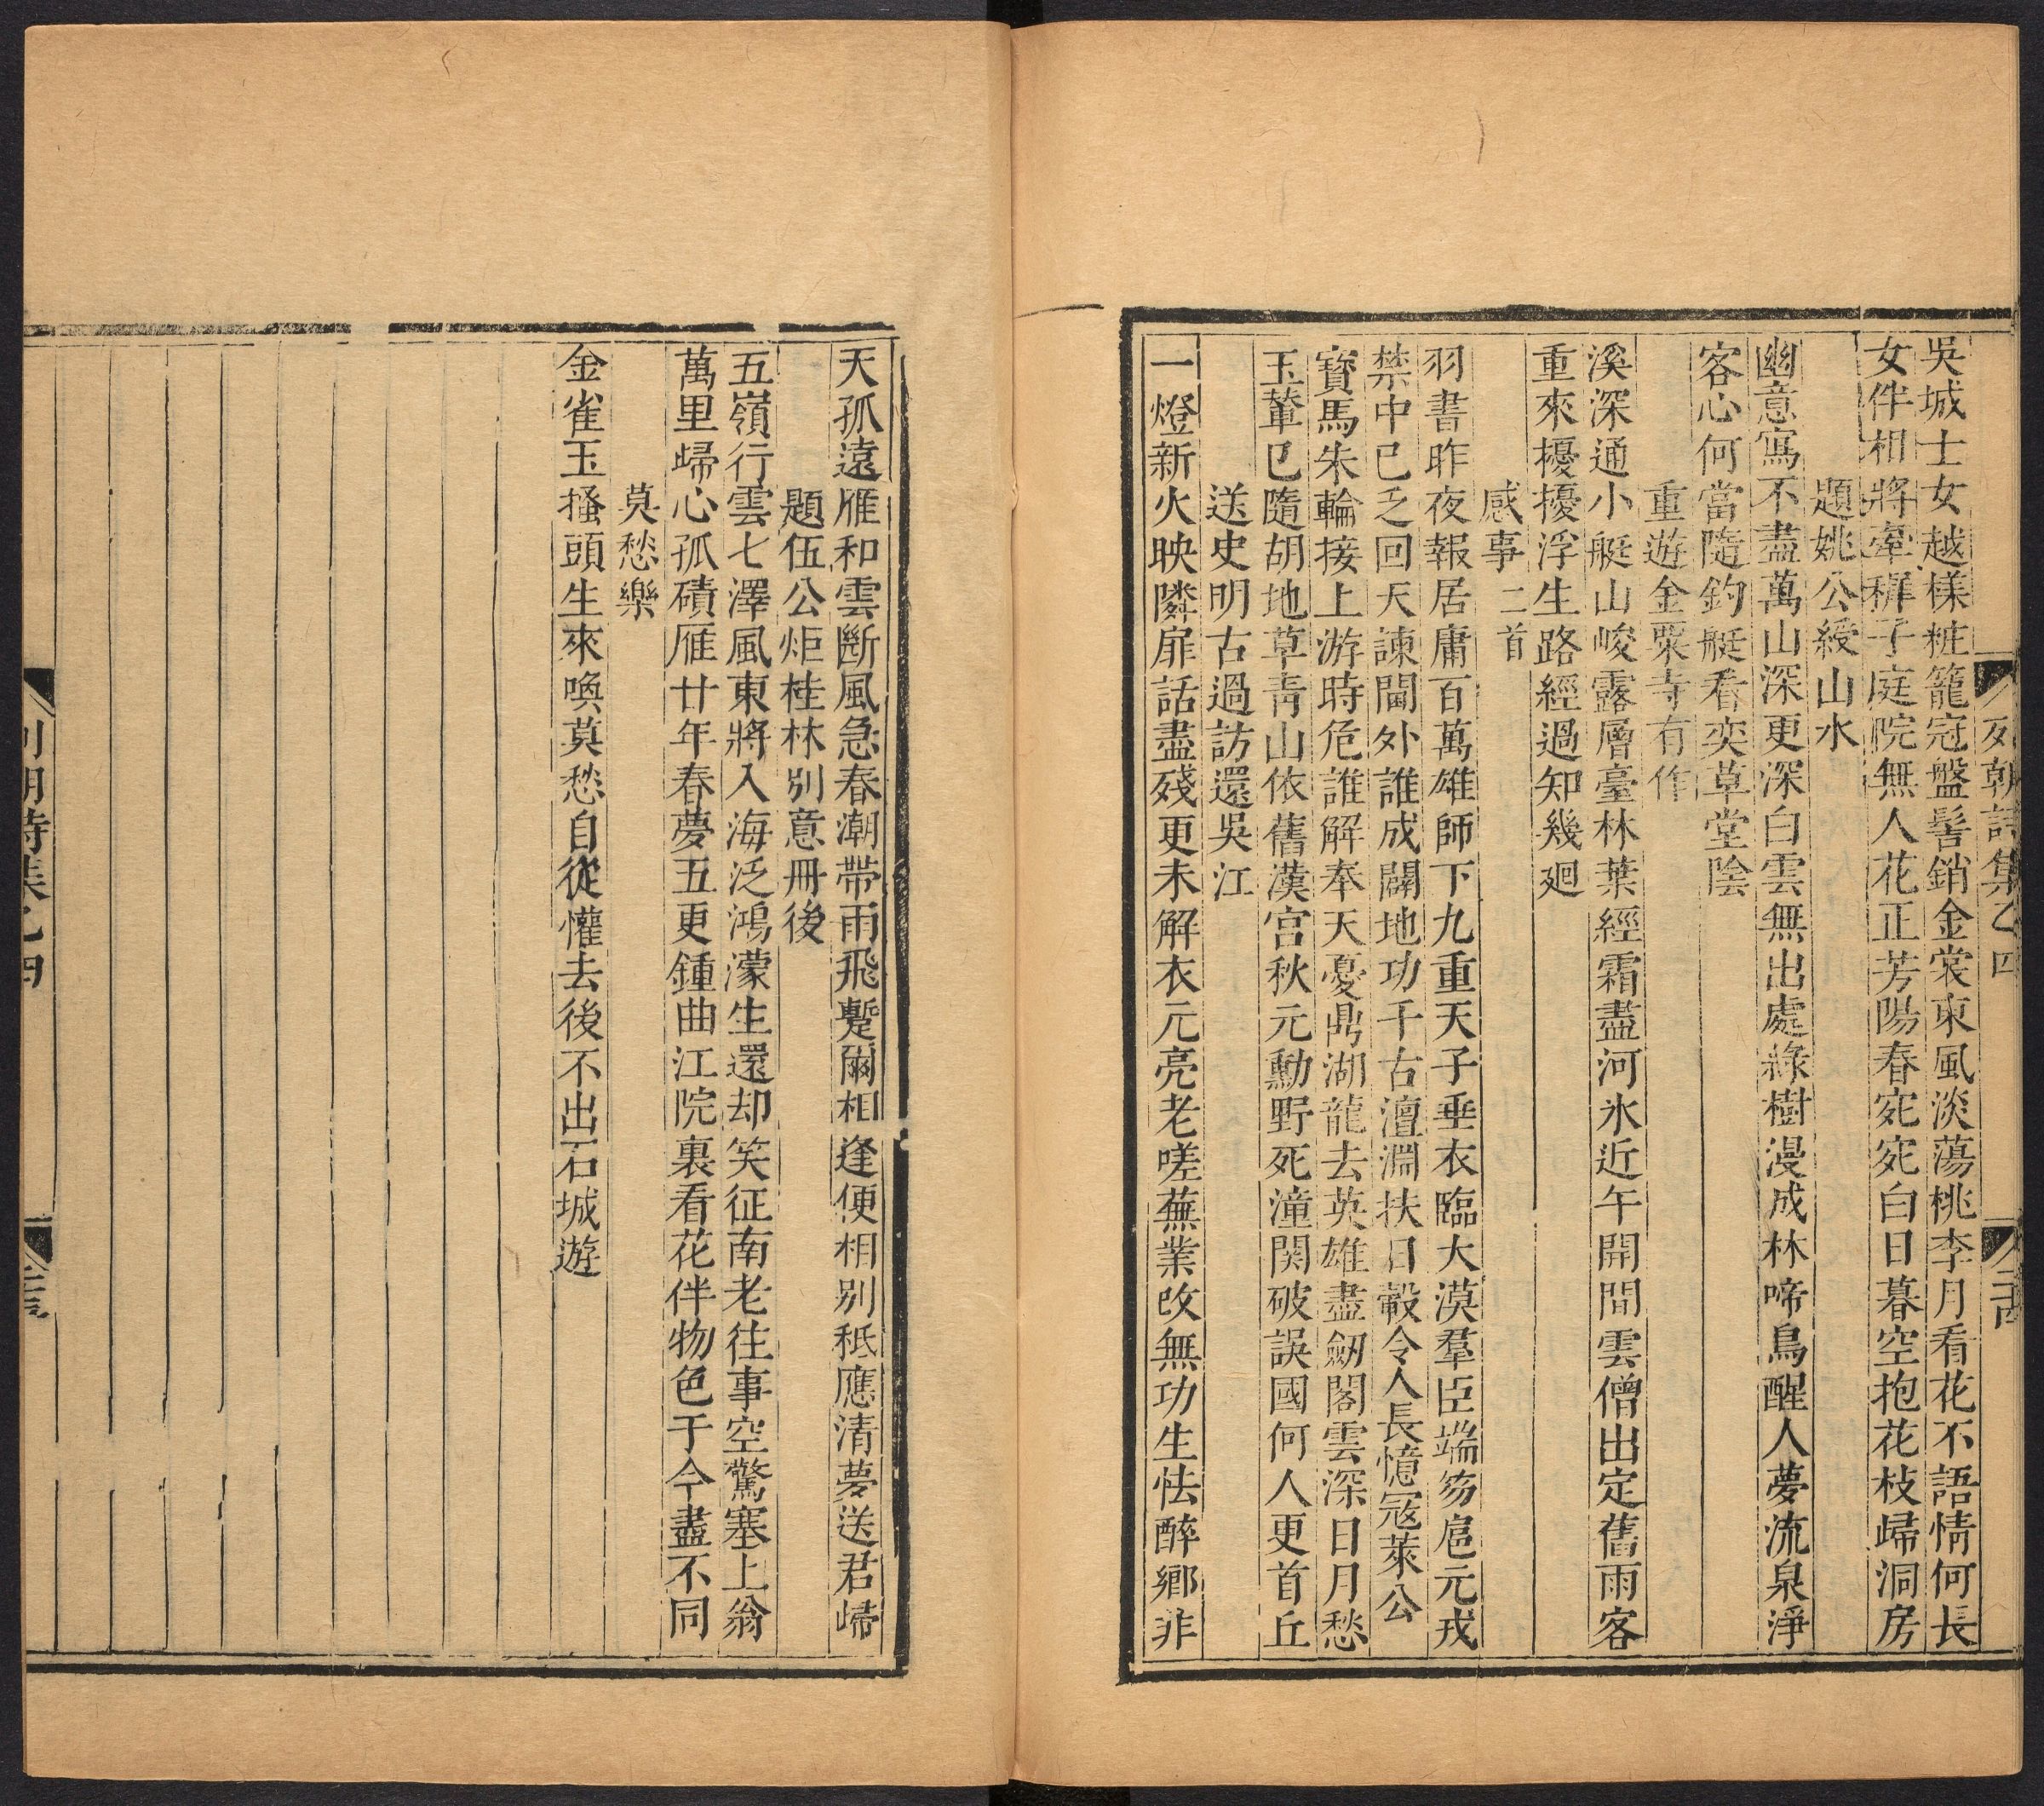 列朝詩集乙四
吳城士女越樣粧籠冠盤髻銷金裳東風淡蕩桃李月看花不語情何長
女伴相將牽穉子庭院無人花正芳陽春宛宛白日暮空抱花枝歸洞房
題姚公綬山水
幽意寫不盡萬山深更深白雲無出處綠樹漫成林啼鳥醒人夢流泉淨
客心何當隨釣艇看奕草堂陰
重遊金粟寺有作
溪深通小艇山峻露層臺林葉經霜盡河氷近午開間雲僧出定舊雨客
重來擾擾浮生路經過知幾廻
感事二首
羽書昨夜報居庸百萬雄師下九重天子垂衣臨大漠羣臣端笏扈元戎
禁中已乏回天諫閫外誰成闢地功千古澶淵扶日轂令人長憶冦萊公
寳馬朱輪接上游時危誰解奉天憂鼎湖龍去英雄盡劒閣雲深日月愁
玉輦已隨胡地草青山依舊漢宮秋元勳野死潼関破誤國何人更首丘
送史明古過訪還吳江
一燈新火映隣扉話盡殘更未解衣元亮老嗟蕪業改無功生怯醉鄉非
天孤遠雁和雲斷風急春潮帶雨飛蹔爾相逢便相别秪應清夢送君歸
題伍公炬桂林别意冊後
五嶺行雲七澤風東將入海泛鴻濛生還却笑征南老往事空驚塞上翁
萬里歸心孤磧雁廿年春夢五更鍾曲江院裏看花伴物色于今盡不同
莫愁樂
金雀玉搔頭生來喚莫愁自從懽去後不出石城遊
列朝詩集乙四